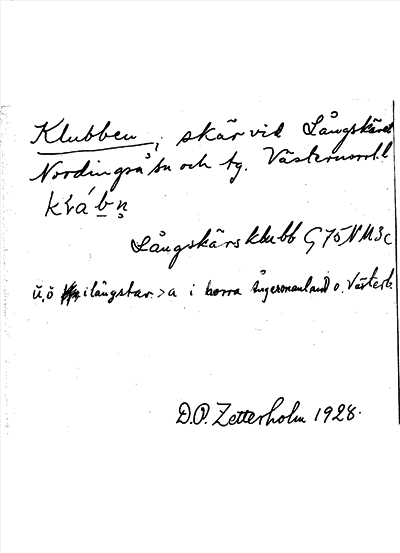 Klubben, skär vid Långskäret
Nordingrå sn och tg. Västernorrl. l
Långskärsklubb G 75 NM3c
ŭ, ŏ i långstav. > a i norra Ångermanland o. Västerb.
D.O. Zetterholm 1928.